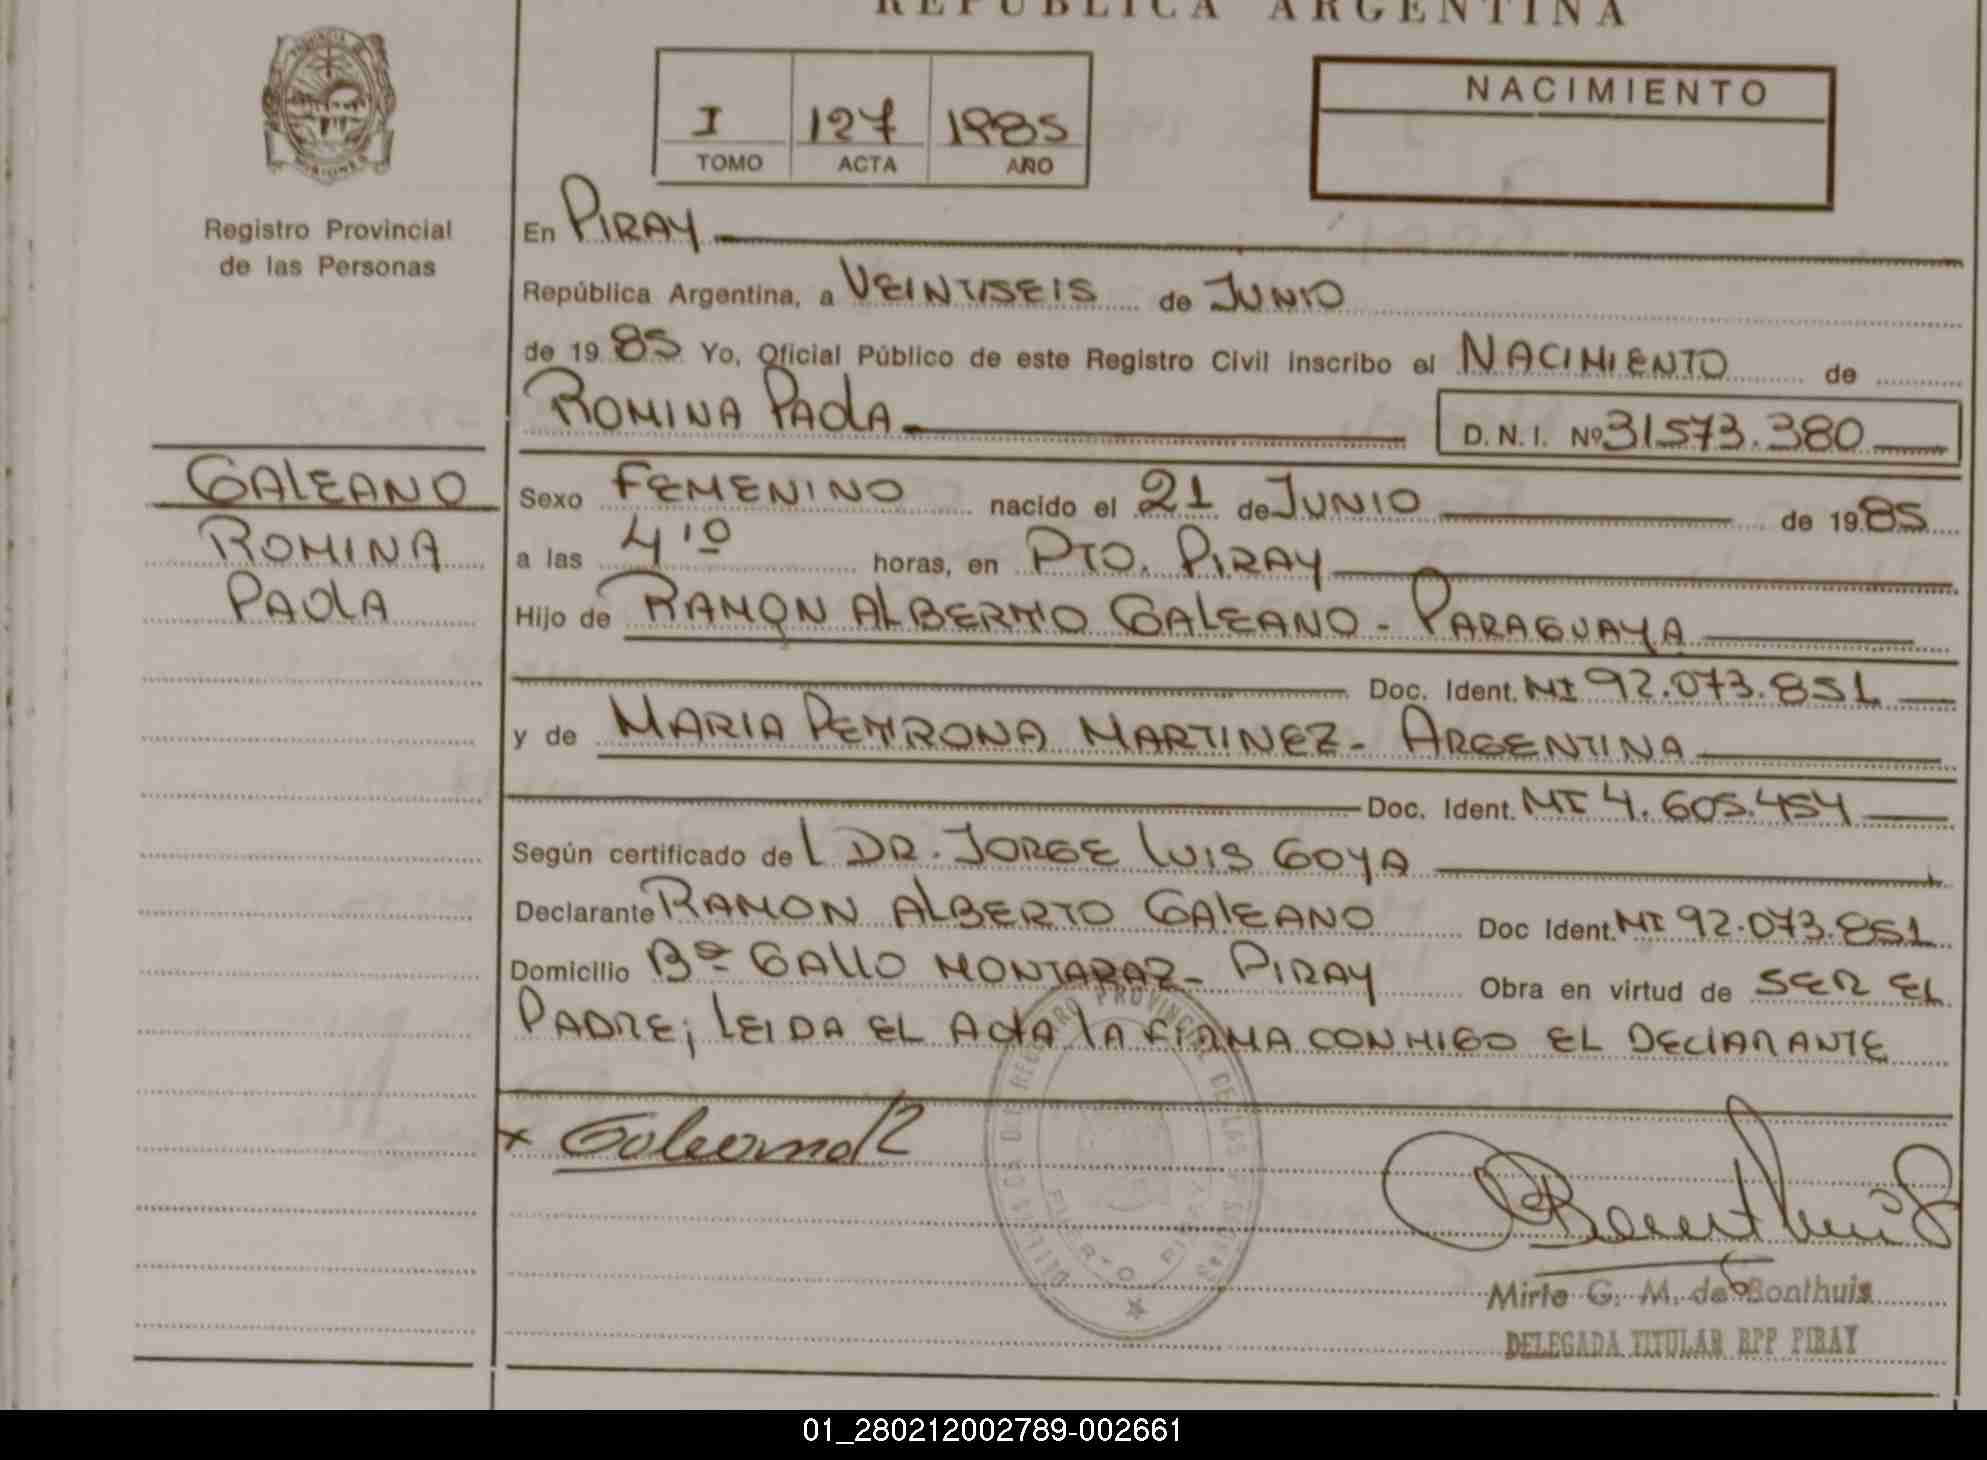 REPUBLICA ARGENTINA
NACIMIENTO
I 127 1985
TOMO ACTA AÑO
Registro Provincial
de las Personas
En PIRAY
República Argentina, a VEINTISEIS de JUNIO
de 19 85 Yo, Oficial Público de este Registro Civil Inscribo el NACIMIENTO de
ROMINA PAOLA
D. N. I. Nº 31.573.380
GALEANO
ROMINA
PAOLA
Sexo FEMENINO nacido el 21 de JUNIO de 19 85
a las 4'º horas, en PTO. PIRAY
Hijo de RAMON ALBERTO GALEANO - PARAGUAYA
Doc. Ident. MI 92.073.851
y de MARIA PETRONA MARTINEZ - ARGENTINA
Doc. Ident. MI 4.605.454
Según certificado del DR. JORGE LUIS GOYA
Declarante RAMON ALBERTO GALEANO Doc Ident. MI 92.073.851
Domicilio Bº GALLO MONTARAZ - PIRAY Obra en virtud de SER EL
PADRE; LEIDA EL ACTA LA FIRMA CONMIGO EL DECLARANTE
x Galeano R
PUERTO PIRAY
Mirta G. M. de Bonthuis
DELEGADA TITULAR RPP PIRAY
01_280212002789-002661